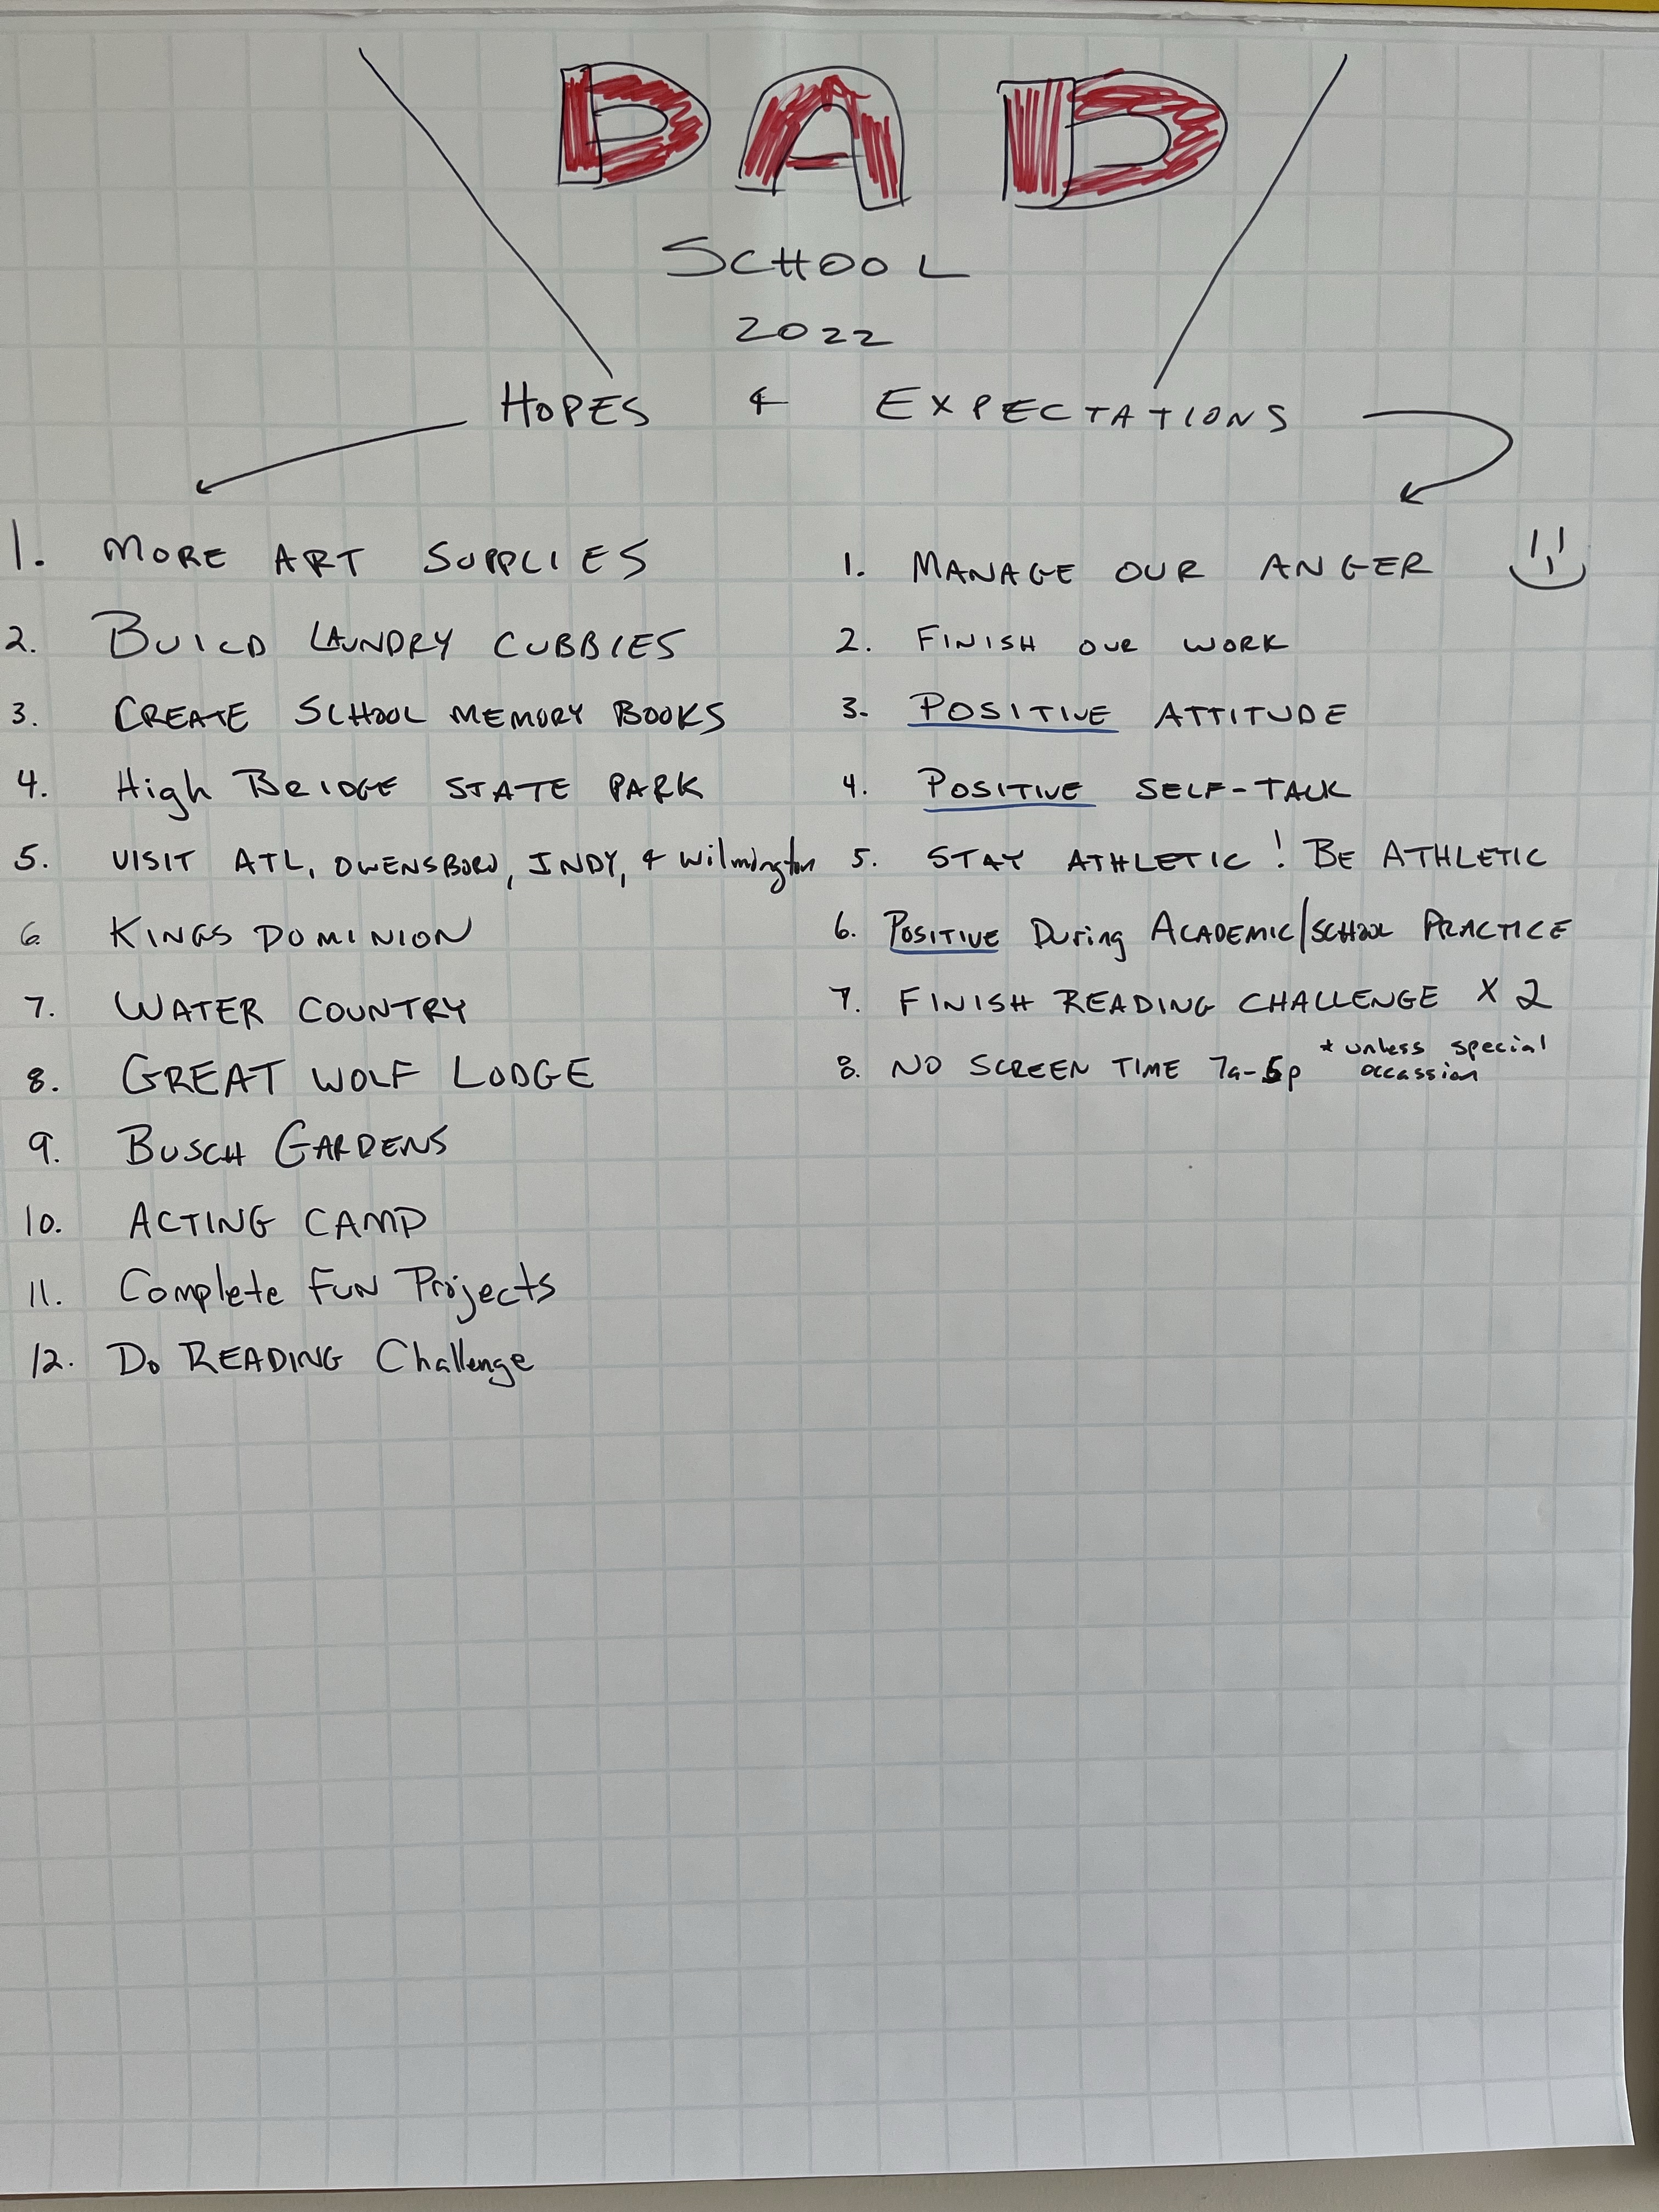 DAD
SCHOOL
2022
HOPES & EXPECTATIONS
1. MORE ART SUPPLIES
2. BUILD LAUNDRY CUBBIES
3. CREATE SCHOOL MEMORY BOOKS
4. High BRIDGE STATE PARK
5. VISIT ATL, OWENSBORO, INDY, & Wilmington
6. KINGS DOMINION
7. WATER COUNTRY
8. GREAT WOLF LODGE
9. BUSCH GARDENS
10. ACTING CAMP
11. Complete FUN Projects
12. Do READING Challenge
1. MANAGE OUR ANGER
2. FINISH OUR WORK
3. POSITIVE ATTITUDE
4. POSITIVE SELF-TALK
5. STAY ATHLETIC! BE ATHLETIC
6. POSITIVE During ACADEMIC/SCHOOL PRACTICE
7. FINISH READING CHALLENGE X 2
8. NO SCREEN TIME 7a-5p * unless special
occassion